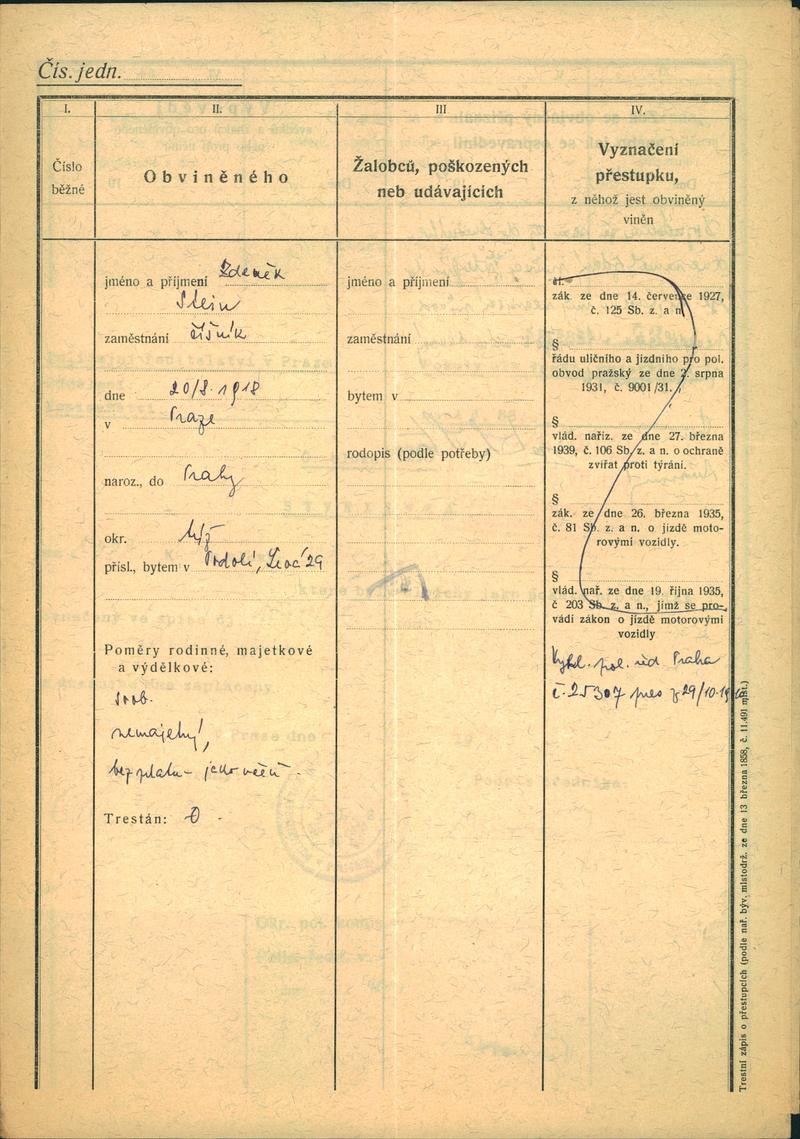 Čís. jedn.
I.
II.
III
IV.
Číslo
běžné
Obviněného
Žalobců, poškozených
neb udávajících
Vyznačení
přestupku,
z něhož jest obviněný
viněn
jméno a příjmení Zdeněk
Stein
zaměstnání číšník
dne 20/8. 1918
v Praze
naroz., do Prahy
okr.
přísl., bytem v Podolí, 29
Poměry rodinné, majetkové
a výdělkové:
svob.
nemajetný,
bez platu - jako
Trestán: 0
jméno a příjmení
zaměstnání
bytem v
rodopis (podle potřeby)
čl.
zák. ze dne 14. července 1927,
č. 125 Sb. z. a n.
§
řádu uličního a jízdního pro pol.
obvod pražský ze dne 2. srpna
1931, č. 9001/31.
§
vlád. naříz. ze dne 27. března
1939, č. 106 Sb. z. a n. o ochraně
zvířat proti týrání.
§
zák. ze dne 26. března 1935,
č. 81 Sb. z. a n. o jízdě moto-
rovými vozidly.
§
vlád. nař. ze dne 19. října 1935,
č 203 Sb. z. a n., jímž se pro-
vádí zákon o jízdě motorovými
vozidly
Vyhl. pol. řed Praha
č. 25307 pres z 29/10.
Trestní zápis o přestupcích (podle nař. býv. místodrž. ze dne 13 března 1858, č. 11.491 míst.)